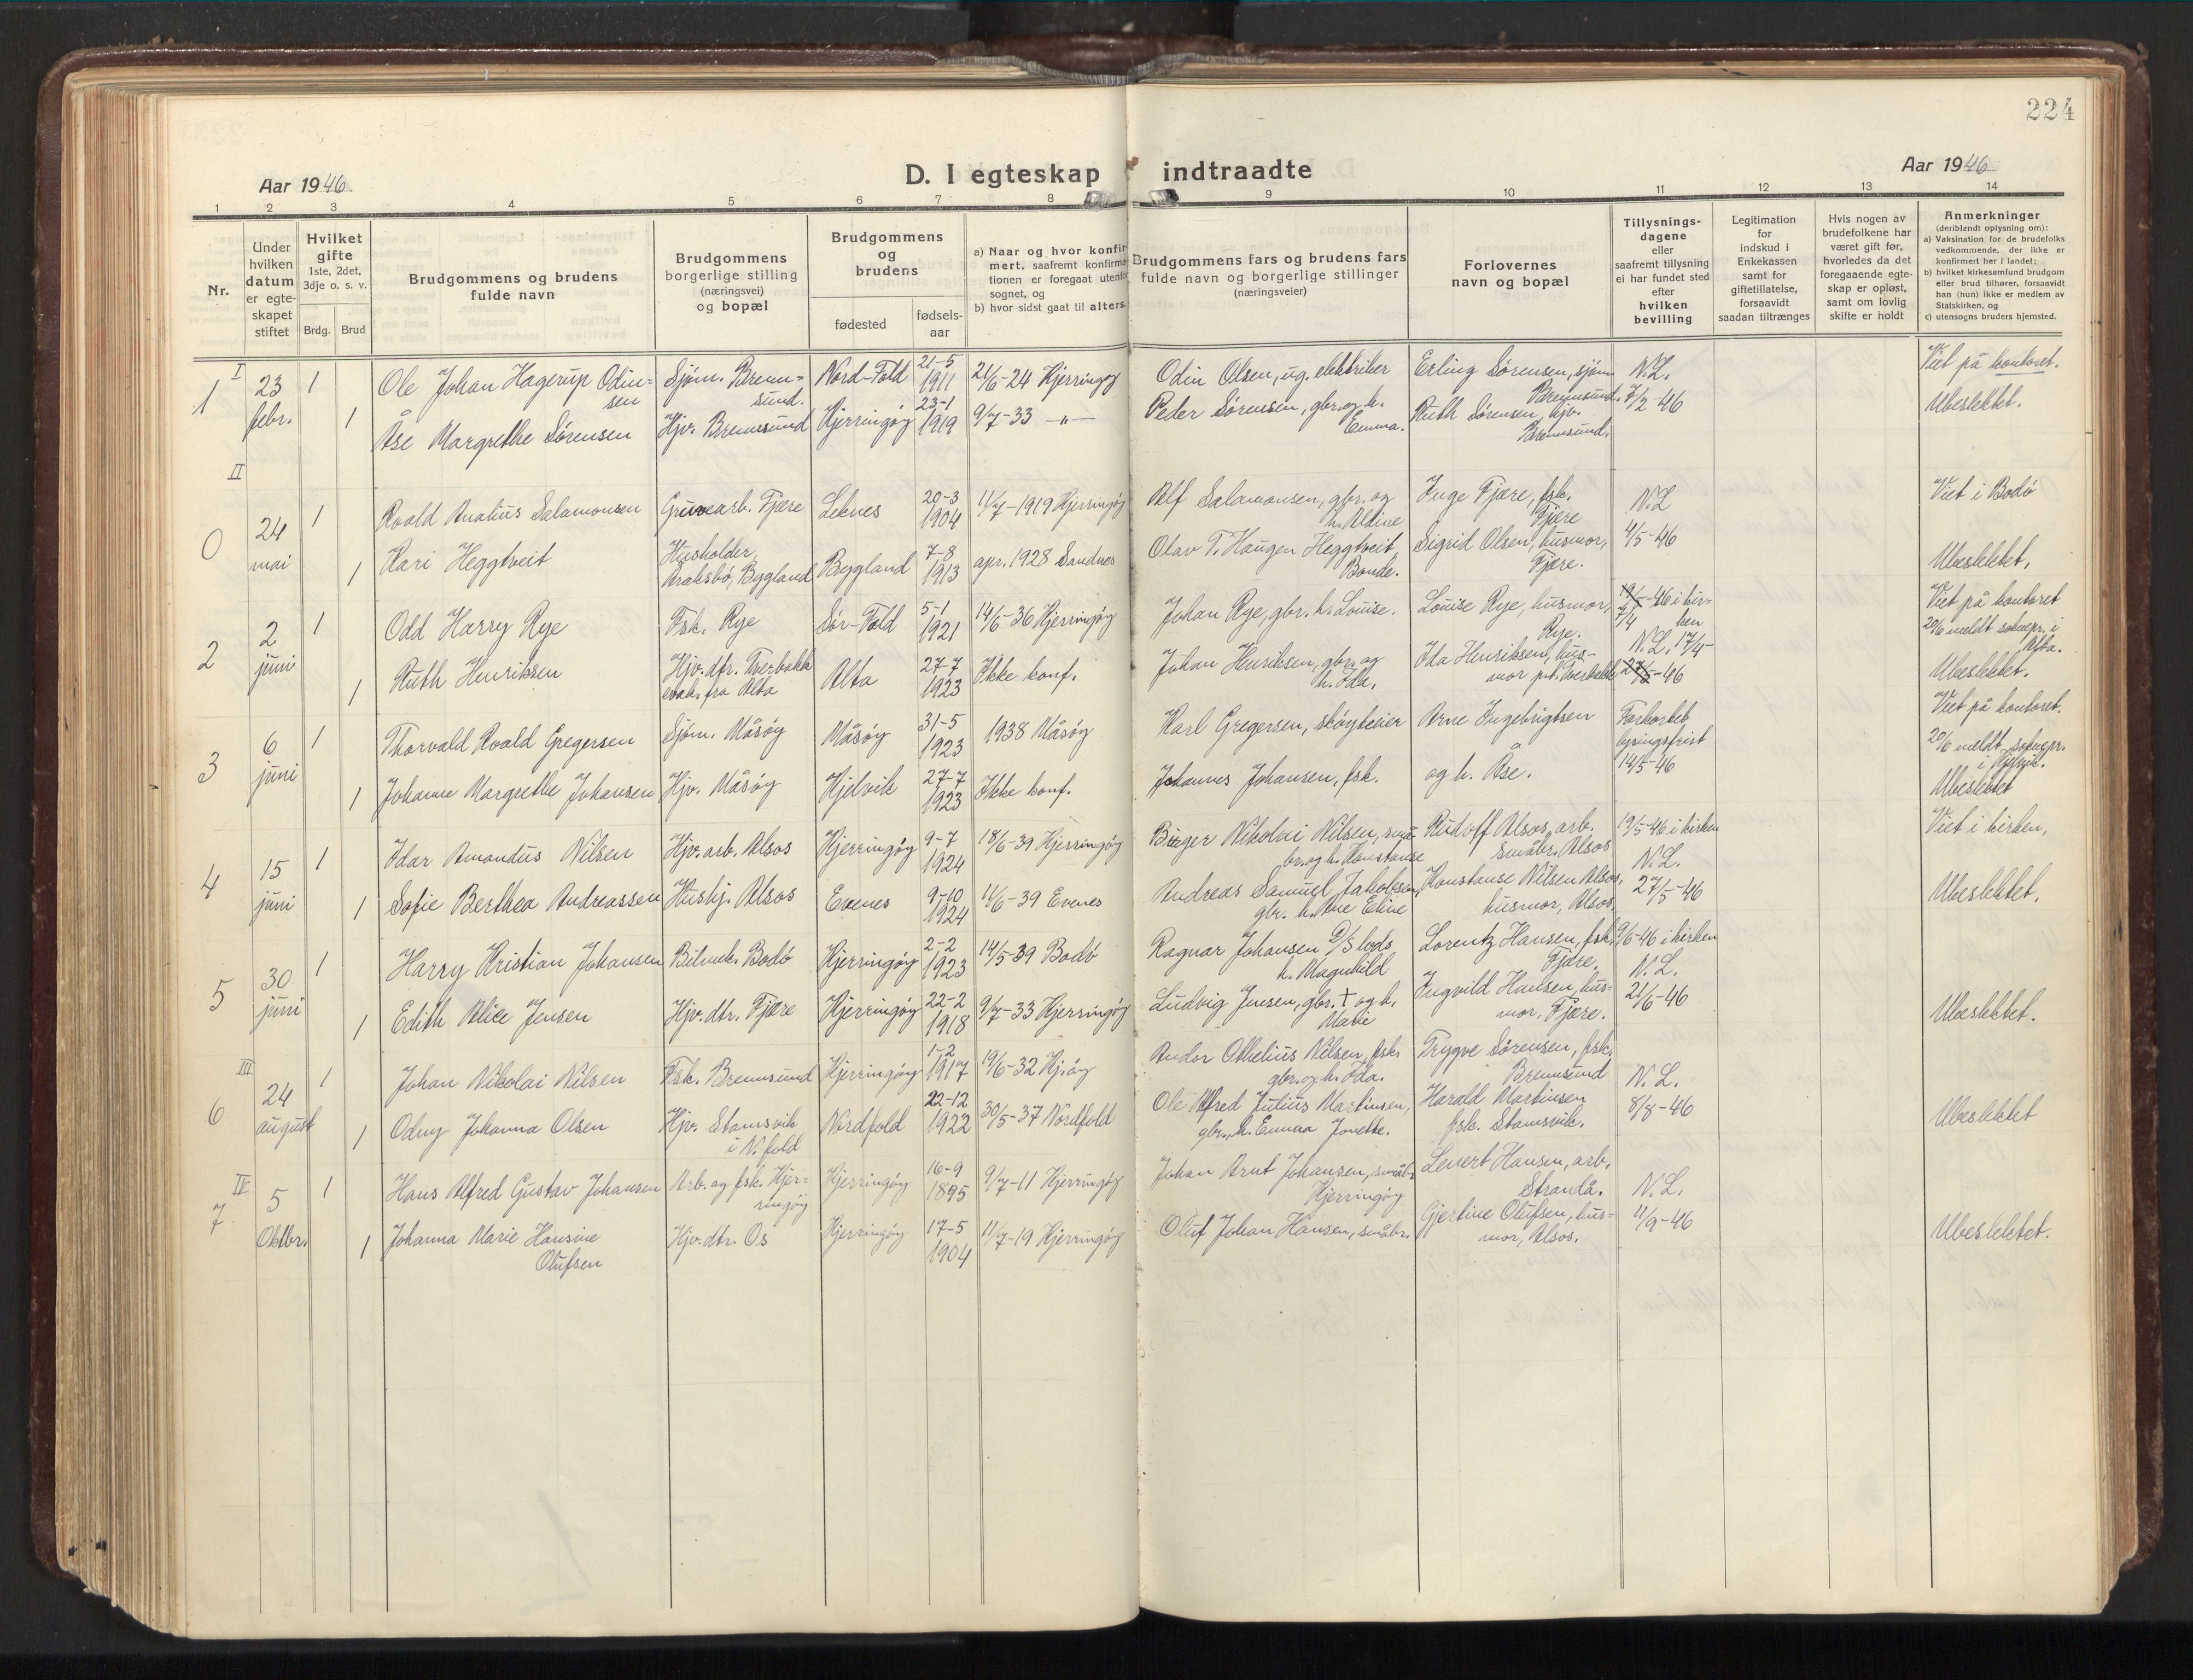 224
Aar 1946
D. I egteskap indtraadte
Aar 1946
1 2 3 4 5 6 7 8 9 10 11 12 13 14
Nr.
Under hvilken datum er egteskapet stiftet
Hvilket gifte
1ste, 2det, 3dje o. s. v.
Brdg. Brud
Brudgommens og brudens fulde navn
Brudgommens borgerlige stilling (næringsvei) og bopæl
Brudgommens og brudens
fødested
fødselsaar
a) Naar og hvor konfirmert, saafremt konfirmationen er foregaat utenfor sognet, og
b) hvor sidst gaat til alters
Brudgommens fars og brudens fars fulde navn og borgerlige stillinger (næringsveier)
Forlovernes navn og bopæl
Tillysningsdagene eller saafremt tillysning ei har fundet sted efter hvilken bevilling
Legitimation for indskud i Enkekassen samt for giftetillatelse, forsaavidt saadan tiltrænges
Hvis nogen av brudefolkene har været gift før, hvorledes da det foregaaende egteskap er opløst, samt om lovlig skifte er holdt
Anmerkninger
(deriblandt oplysning om):
a) Vaksination for de brudefolks vedkommende, der ikke er konfirmert her i landet;
b) hvilket kirkesamfund brudgom eller brud tilhører, forsaavidt han (hun) ikke er medlem av Statskirken, og
c) utensogns bruders hjemsted.
I
1 23 febr. 1 Ole Johan Hagerup Odinsen Sjøm. Bremsund. Nord-Fold 21-5 1911 21/6-24 Hjerringøy Odin Olsen, ug. elektriker Erling Sørensen, sjøm. Bremsund. N.L. 7/2-46 Viet på kontoret.
1 Åse Margrethe Sørensen Hjv. Bremsund Hjerringøy 23-1 1919 9/7-33 -"- Peder Sørensen, gbr. og h. Emma. Ruth Sørensen, hjv. Bremsund. Ubeslektet.
II
0 24 mai 1 Roald Analius Salamonsen Gruvearb. Fjære Leknes 20-3 1904 11/7-1919 Hjerringøy Alf Salamonsen, gbr. og h. Aldine Inge Fjære, fsk. Fjære N.L 4/5-46 Viet i Bodø
1 Kari Heggtveit Husholder, Araksbø, Bygland Bygland 7-8 1913 apr. 1928 Sandnes Olav T. Haugen Heggtveit, Bonde. Sigrid Olsen, husmor, Fjære. Ubeslektet.
2 2 juni 1 Odd Harry Rye Fsk. Rye Sør-Fold 5-1 1921 14/6-36 Hjerringøy Johan Rye, gbr. h. Louise. Louise Rye, husmor, Rye. 19/5-46 i kirken N.L. 17/4 Viet på kontoret 20/6 meldt soknepr. i Alta.
1 Ruth Henriksen Hjv. dtr. Tverbakk evak. fra Alta Alta 27-7 1923 Ikke konf. Johan Henriksen, gbr. og h. Ida. Ida Henriksen, husmor p.t. Tverbakk 27/5-46 Ubeslektet.
3 6 juni 1 Thorvald Roald Gregersen Sjøm. Måsøy Måsøy 31-5 1923 1938 Måsøy Karl Gregersen, skøyteeier Arne Ingebrigtsen Forkortet lysingsfrist 14/5-46 Viet på kontoret. 20/6 meldt soknepr. i
1 Johanne Margrethe Johansen Hjv. Måsøy Hjelvik 27-7 1923 Ikke konf. Johannes Johansen, fsk. og h. Åse. Ubeslektet
4 15 juni 1 Idar Amandus Nilsen Hjv. arb. Alsos Hjerringøy 9-7 1924 18/6-39 Hjerringøy Birger Nikolai Nilsen, småbr. og h. Konstanse Rudolf Alsos, arb. småbr. Alsos 19/5-46 i kirken N.L. 27/5-46 Viet i kirken,
1 Sofie Berthea Andreassen Hushj. Alsos Evenes 9-10 1924 11/6-39 Evenes Andreas Samuel Jakobsen, gbr. h. Ane Eline Konstanse Nilsen Alsos, husmor, Alsos. Ubeslektet.
5 30 juni 1 Harry Kristian Johansen Bilmek. Bodø Hjerringøy 2-2 1923 14/5-39 Bodø Ragnar Johansen D/S lods h. Magnhild Lorentz Hansen, fsk. Fjære. 9/6-46 i kirken N.L. 21/6-46
1 Edith Alice Jensen Hjv. dtr. Fjære Hjerringøy 22-2 1918 9/7-33 Hjerringøy Ludvig Jensen, gbr. † og h. Marie Ingvild Hansen, husmor, Fjære. Ubeslektet.
III
6 24 august 1 Johan Nikolai Nilsen Fsk. Bremsund Hjerringøy 1-2 1917 19/6-32 Hj.øy Andor Othelius Nilsen, fsk. gbr. og h. Ida. Trygve Sørensen, fsk. Bremsund N.L. 8/8-46
1 Odny Johanna Olsen Hjv. Stamsvik i N. fold Nordfold 22-12 1922 30/5-37 Nordfold Ole Alfred Julius Martinsen, gbr., h. Emma Jonette. Harald Martinsen fsk. Stamsvik. Ubeslektet
IV
7 5 Oktbr. 1 Hans Alfred Gustav Johansen Arb. og fsk. Hjerringøy Hjerringøy 16-9 1895 9/7-11 Hjerringøy Johan Arnt Johansen, småbr. Hjerringøy Levert Hansen, arb. Strandå. N.L. 11/9-46
1 Johanna Marie Hansine Olufsen Hjv. dtr. Os Hjerringøy 17-5 1904 11/7-19 Hjerringøy Oluf Johan Hansen, småbr. Gjertine Olufsen, husmor, Alsos. Ubeslektet.